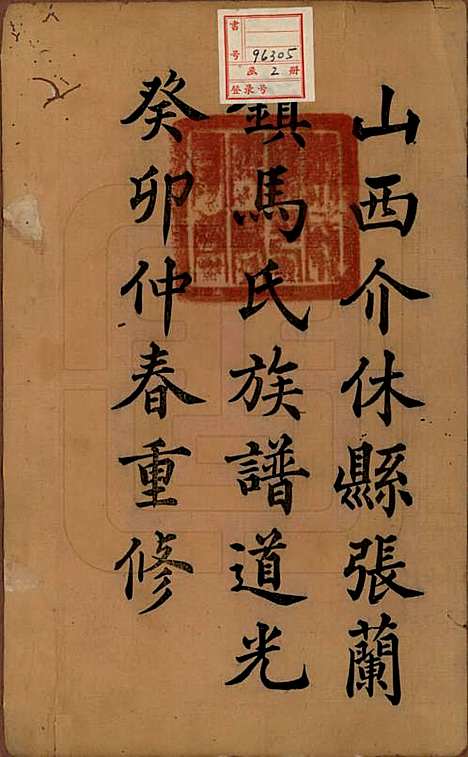 山西介休縣張蘭
鎮馬氏族譜道光
癸卯仲春重修
書
號 96305
函 2 冊
登录号